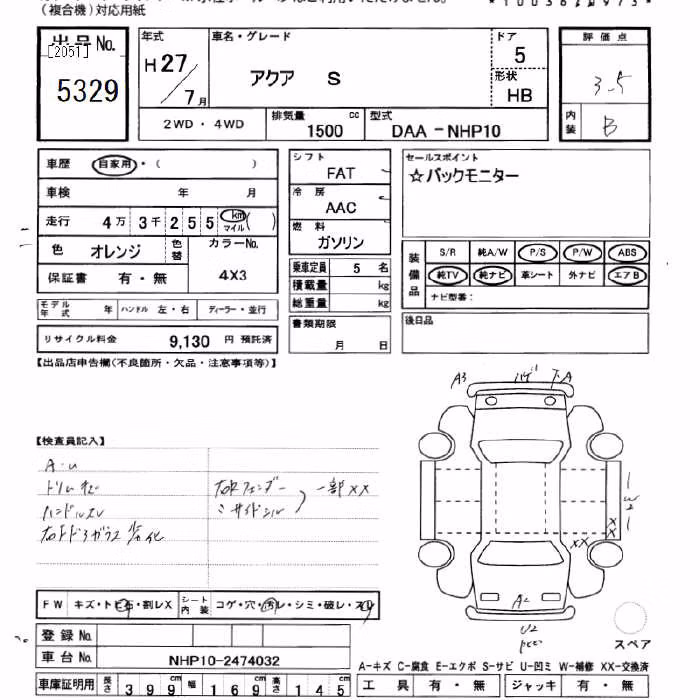 (複合機)対応用紙
出品No. [2051] 5329
年式 H27/7月
車名・グレード アクア S
ドア 5
形状 HB
評価点 3.5
内装 B
2WD・4WD
排気量 1500 cc
型式 DAA-NHP10
車歴 自家用・( )
車検 年 月
走行 4万3千255 km マイル ( )
色 オレンジ 色替 カラーNo. 4X3
保証書 有・無
モデル年式 年 ハンドル 左・右 ディーラー・並行
リサイクル料金 9,130 円 預託済
シフト FAT
冷房 AAC
燃料 ガソリン
乗車定員 5 名
積載量 kg
総重量 kg
書類期限 月 日
セールスポイント
☆バックモニター
装備品 S/R 純A/W P/S P/W ABS
純TV 純ナビ 革シート 外ナビ エアB
ナビ型番:
後日品
【出品店申告欄(不良箇所・欠品・注意事項等)】
【検査員記入】
A・U
ハンドルスレ
一部XX
A3
A
W2
XX
A2
U2
スペア
FW キズ・トビ石・割レX シート内装 コゲ・穴・汚レ・シミ・破レ・スレ
登録No.
車台No. NHP10-2474032
車庫証明用 長さ 399cm 幅 169cm 高さ 145
A-キズ C-腐食 E-エクボ S-サビ U-凹ミ W-補修 XX-交換済
工具 有・無 ジャッキ 有・無